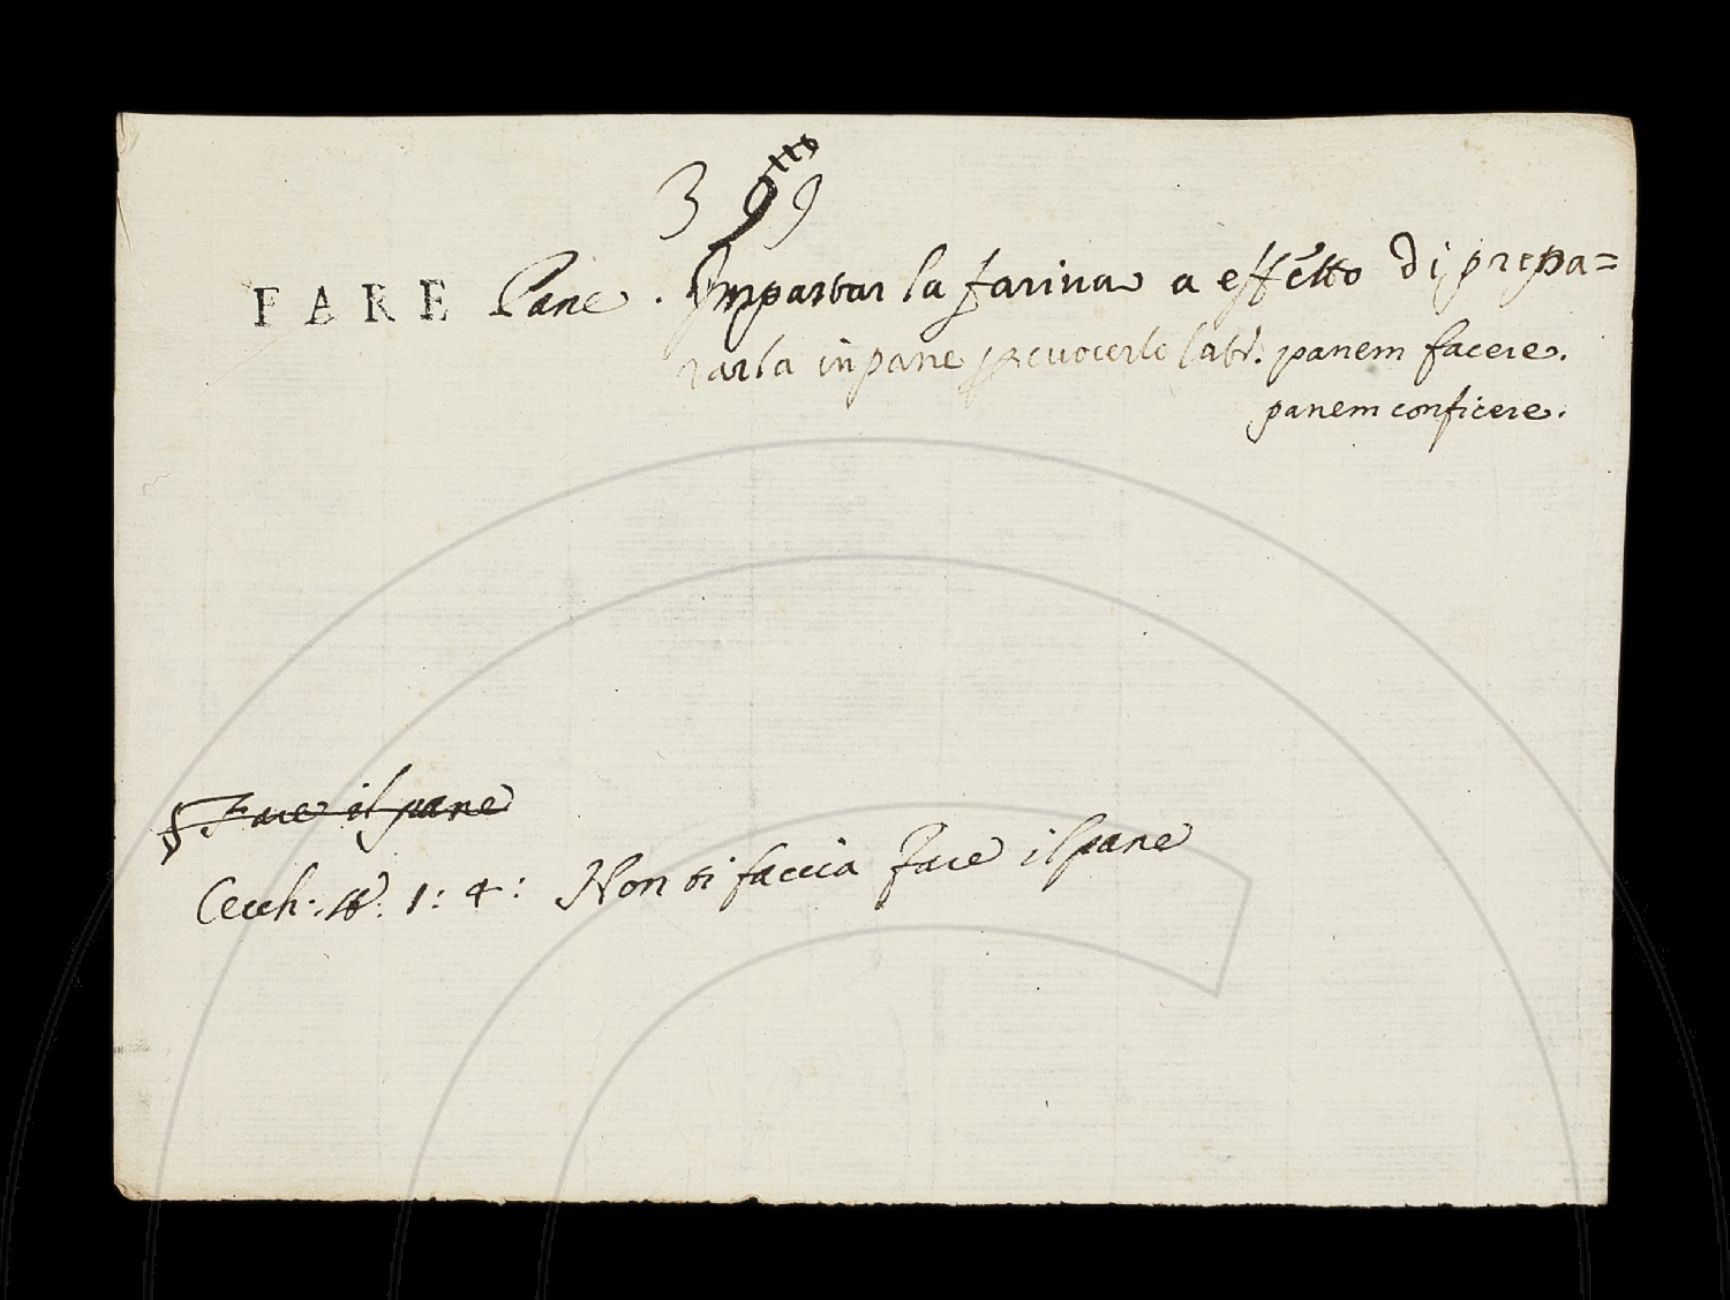 399
FARE Pane. Impastar la farina a effetto di prepa=
rarla in pane p cuocerlo lat. panem facere.
panem conficere.
§ Fare il pane
Cecch: 1: 4: Non si faccia fare il pane